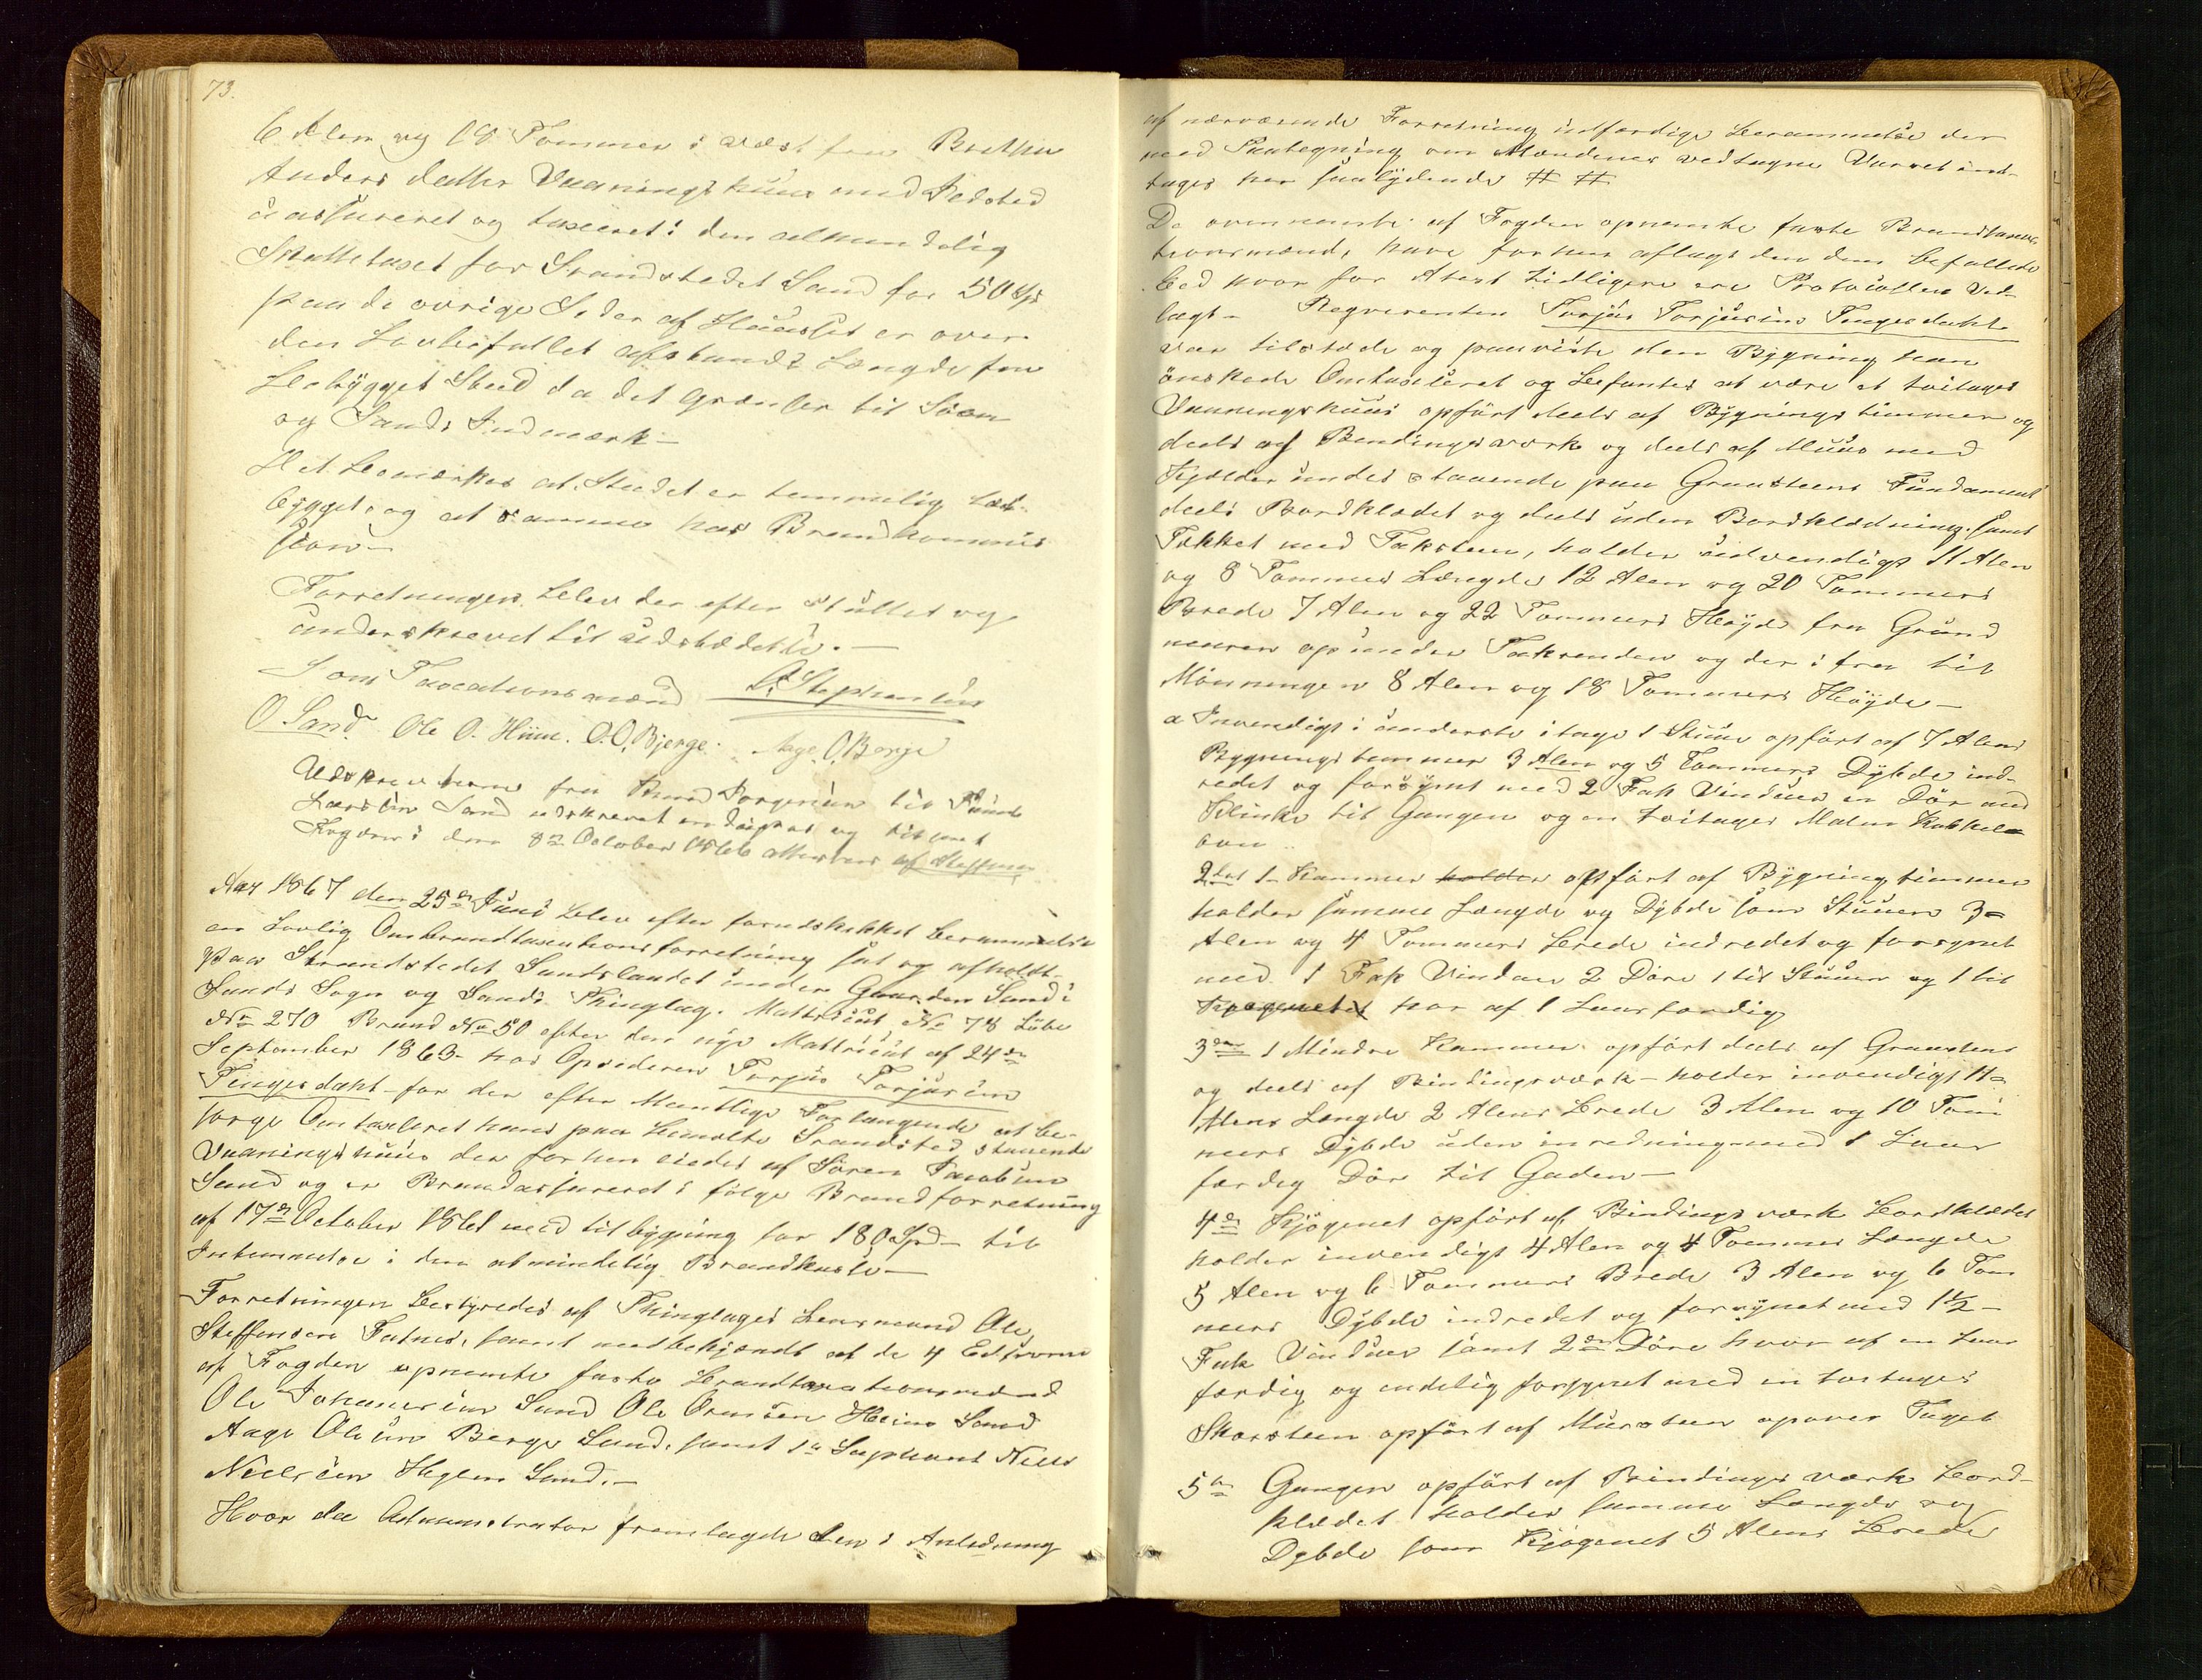 73.
6 Alen og 18 Tommer i væst fra Brethe
Anders datter Vaaningshuus med Ildsted
i assureret og taxeret i den almindelig
for Strandstedet Sand for 50 Spd
paa de øvrige Sider af Huuset er over
den Lovbefallet afstands Længde fra
Bebygget Sted da det Grændser til Søen
og Sands Indmark-
Det bemærkes at Stedet er temmelig tæt-
bygget, og at samme har Brandkommis
sion-
Forretningen blev der efter Sluttet og
underskrevet til Udstædelse. -
Som Taxationsmænd O. Stephensen
O Sand. Ole O. Hiim. O. O. Bjerge. Aage. O. Berge
fra Knud Torgersen til
Larsen Sand udskrevet og tilsent
Fogden i den 8de October 1866 attesteres af Steffensen
Aar 1867 den 25de Juni blev efter forudskikket berammelse
en Lovlig Ombrandtaxationsforretning sat og afholdt-
paa Strandstedet Sandslandet under Gaarden Sand i
Sands Sogn og Sands Thinglag. Mattricul No 78 Løbe
No 270 Brand No 50 efter den nye Mattricul af 24de
September 1863- hos Opsideren Torjus Torjusen
Tengesdahl- for der efter Mundtlige Forlangende at be-
sørge Omtaxeret hans paa bemelte Strandsted staaende
Vaaningshuus der forhen eiedes af Søren Jacobsen
Sand og er Brandassureret i følge Brandforretning
af 17de October 1861 med tilbygning for 180 Spd- til
Intennelse i den almindelig Brandkasse-
Forretningen bestyredes af Thinglagets Lensmand Ole
Steffensen Fatnes, samt medbetjændt af de 4 Edsvorne
af Fogden opnævnte faste brandtaxationsmænd
Ole Johannesen Sand Ole Ormsen Heimo Sand
Aage Olsen Berge Sand, samt 1ste Supleant Niels
Nielsen Hylen Sand. -
Hvor da Administrator fremlagde den i Anledning
af nærværende Forretning udfærdige berammelse der
med Paategning om Mændenes vedtagne Varsel ind-
tages her saalydende # #
De ovennevnte af Fogden opnævnte faste Brandtaxa
tionsmænd, have forhen aflagt den dem befallede
Eed hvorfor Atest tidligere ere Protocollen ved-
lagt- Reqvirenten Torjus Torjusens Tengesdahl
var tilstæde og paaviste den Bygning han
ønskede Omtaxeret og befantes at være et toetages
Vaaningshuus opført deels af Bygnings tømmer og
deels af Bendingsværk og deels af Muur med
Kjelder under staaende paa Graasteens Fundament
deels Bordklædet og deels uden Bordklædning samt
Tækket med Taksteen, holder udvendigt 11 Alen
og 8 Tommers Længde 12 Alen og 20 Tommers
Brede 7 Alen og 22 Tommers Høyde fra Grund
muren op under Takrenden og der i fra til
Mønningen 8 Alen og 18 Tommers Høyde-
a Invendigt i underste etage 1 Stuue opført af 7 Alens
Bygnings tømmer 3 Alen og 5 Tommers Dybde ind-
redet og forsynet med 2 Fak Vinduer en Dør med
Klinke til Gangen og en toetages Malm Kakkel
ovn..
2det 1 Kammer holder opført af Bygningstømmer
holder samme Længde og Dybde som Stuuen 3=
Alen og 4 Tommers brede indredet og forsynet
med 1 Fak Vindue 2 Døre 1 til Stuuen og 1 til
Kjøgenet hor af 1 Laasfærdig
3de 1 Mindre Kammer opført deels af Graasteens
og deels af Bindingsværk- holder invendigt 4=
Alens Længde 2 Alens brede 3 Alen og 10 Tom
mers Dybde uden inredning med 1 Laas
færdig Dør til Gaden-
4de Kjøgenet opført af Bindingsværk bordklædet
holder invendigt 4 Alen og 4 Tommer Længde
5 Alen og 6 Tommers Brede 3 Alen og 6 Tom
mers Dybde indredet og forsynet med 1½-
Fak Vinduer samt 2de Døre hvor af en Laas
færdig og endelig forsynet med en toetages
Skorsteen opført af Mursteen opover Taget
5te Gangen opført af Bindings værk bord-
klædet holder samme Længde og
Dybde som Kjøgenet 5 Alens Brede